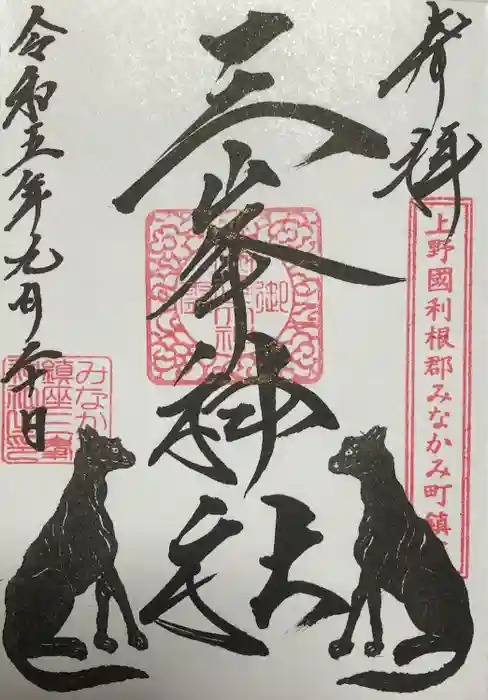 奉拝
上野國利根郡みなかみ町鎮
三峯神社
令和五年九月二十日
みなか
鎮座三